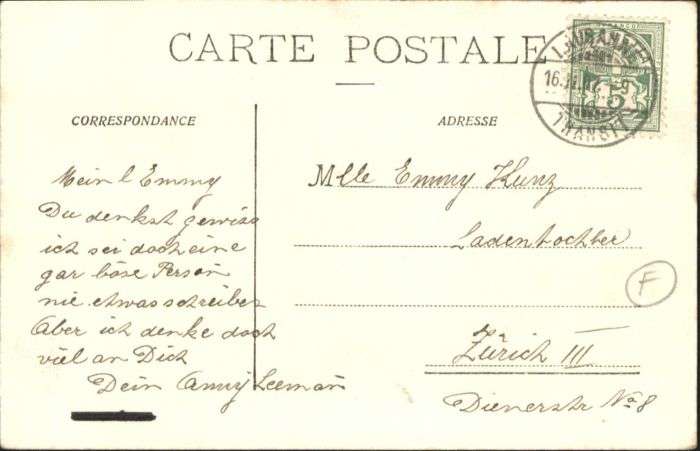 CARTE POSTALE
CORRESPONDANCE
ADRESSE
Mein l Emmy
Du denkst gewiss
ich sei doch eine
gar böse Person
nie etwas schreiben
Aber ich denke doch
viel an Dich
Dein Anny Leeman
Mlle Emmy Kunz
Ladentochter
Zürich III
Dienerstr No 8
F
LAUSANNE
TRANSIT
5